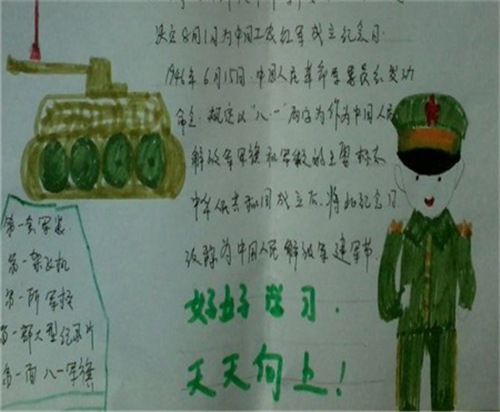 决定8月1日为中国工农红军成立纪念日.
1946年6月15日.中国人民革命军委员会发动
命令.规定以“八一”两字为作为中国人民
解放军军旗和军徽的主要标志
中华人民共和国成立后.将此纪念日
改称为中国人民解放军建军节.
第一套军装.
第一架飞机
第一所军校
第一部大型纪录片
第一面八一军旗
好好学习.
天天向上!